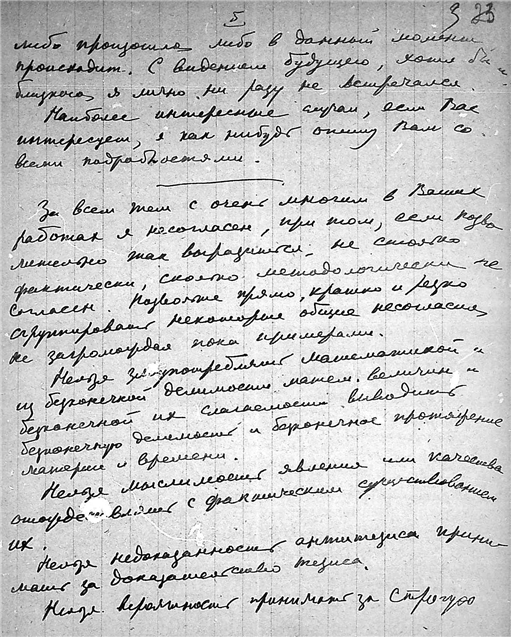 5
3 23
либо произошло либо в данный момент
происходит. С видением будущего, хотя бы и
близкого, я лично ни разу не встречался.
Наиболее интересные случаи, если Вас
интересует, я как нибудь опишу Вам со
всеми подробностями.
За всем тем с очень многим в Ваших
работах я несогласен, при том, если позво
лительно так выразиться не столько
фактически, сколько методологически не
согласен. Позвольте прямо, кратко и резко
сгруппировать некоторые общие несогласия,
не загромождая пока примерами.
Нельзя злоупотреблять математикой и
из безконечной делимости матем. величин и
безконечной их слагаемости выводить
безконечную делимость и безконечное протяжение
материи и времени.
Нельзя мыслимость явления или качества
отождествлять с фактическим существованием
их.
Нельзя недоказанность антитезиса прини-
мать за доказательство тезиса.
Нельзя вероятность принимать за строгую